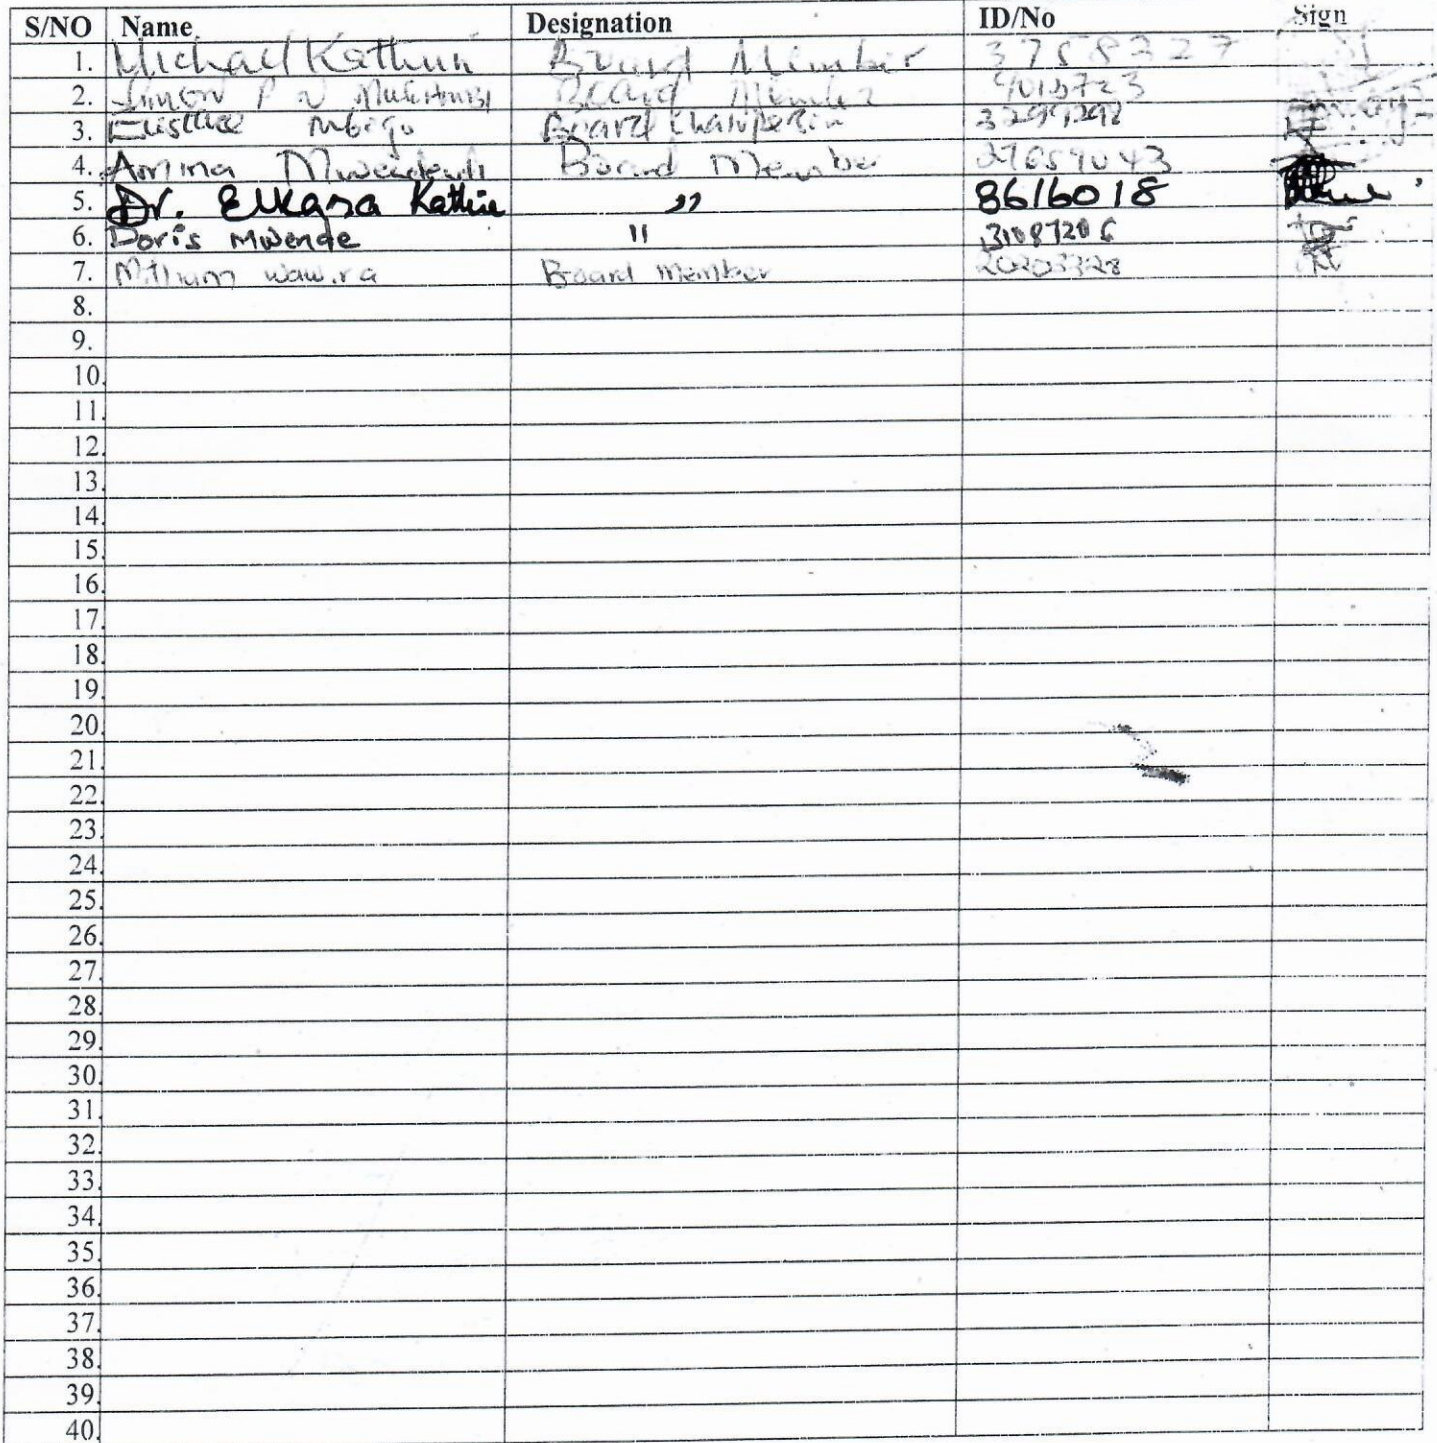 S/NO Name Designation ID/No Sign
1. Michael Kathuri Board Member 3758327
2. Simon P N Board Member
3. Eustace Mbigo Board Chairperson 3299298
4. Amina Board Member 27659043
5. Dr. Elkana Kathie " 8616018
6. Doris Mwende " 31087206
7. Wawira Board Member
8.
9.
10.
11.
12.
13.
14.
15.
16.
17.
18.
19.
20.
21.
22.
23.
24.
25.
26.
27.
28.
29.
30.
31.
32.
33.
34.
35.
36.
37.
38.
39.
40.